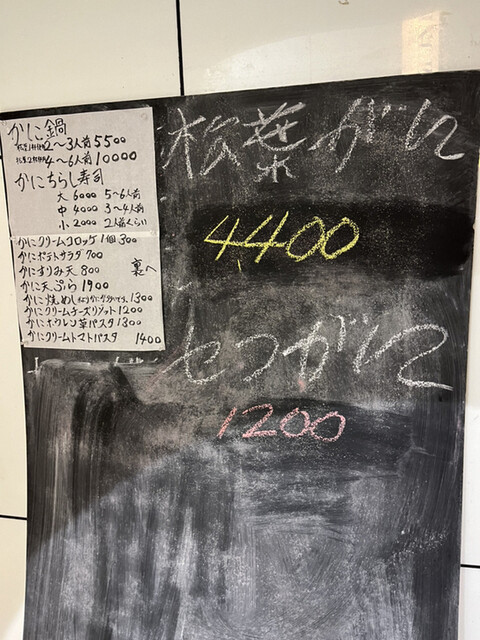 かにこ鍋
2〜3人前 5500
4〜6人前 10000
かにちらし寿司
大 6000 5〜6人前
中 4000 3〜4人前
小 2000 2人前くらい
かにクリームコロッケ 1個 300
かにポテトサラダ 700
かにすりみ天 800
裏へ
かに天ぷら 1900
かに焼めし 1300
かにクリームチーズリゾット 1200
かにホウレン草パスタ 1300
かにクリームトマトパスタ 1400
松葉がに
4400
せつがに
1200